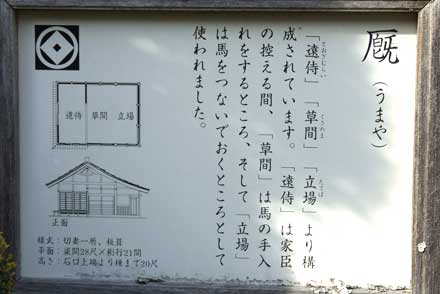 厩
(うまや)
「遠侍」「草間」「立場」より構
とおざむらい
くさのま
たつば
成されています。「遠侍」は家臣
の控える間、「草間」は馬の手入
れをするところ、そして「立場」
は馬をつないでおくところとして
使われました。
遠侍 草間 立場
正面
様式：切妻一層、板葺
平面：梁間28尺×桁行21間
高さ：石口上端より棟まで20尺